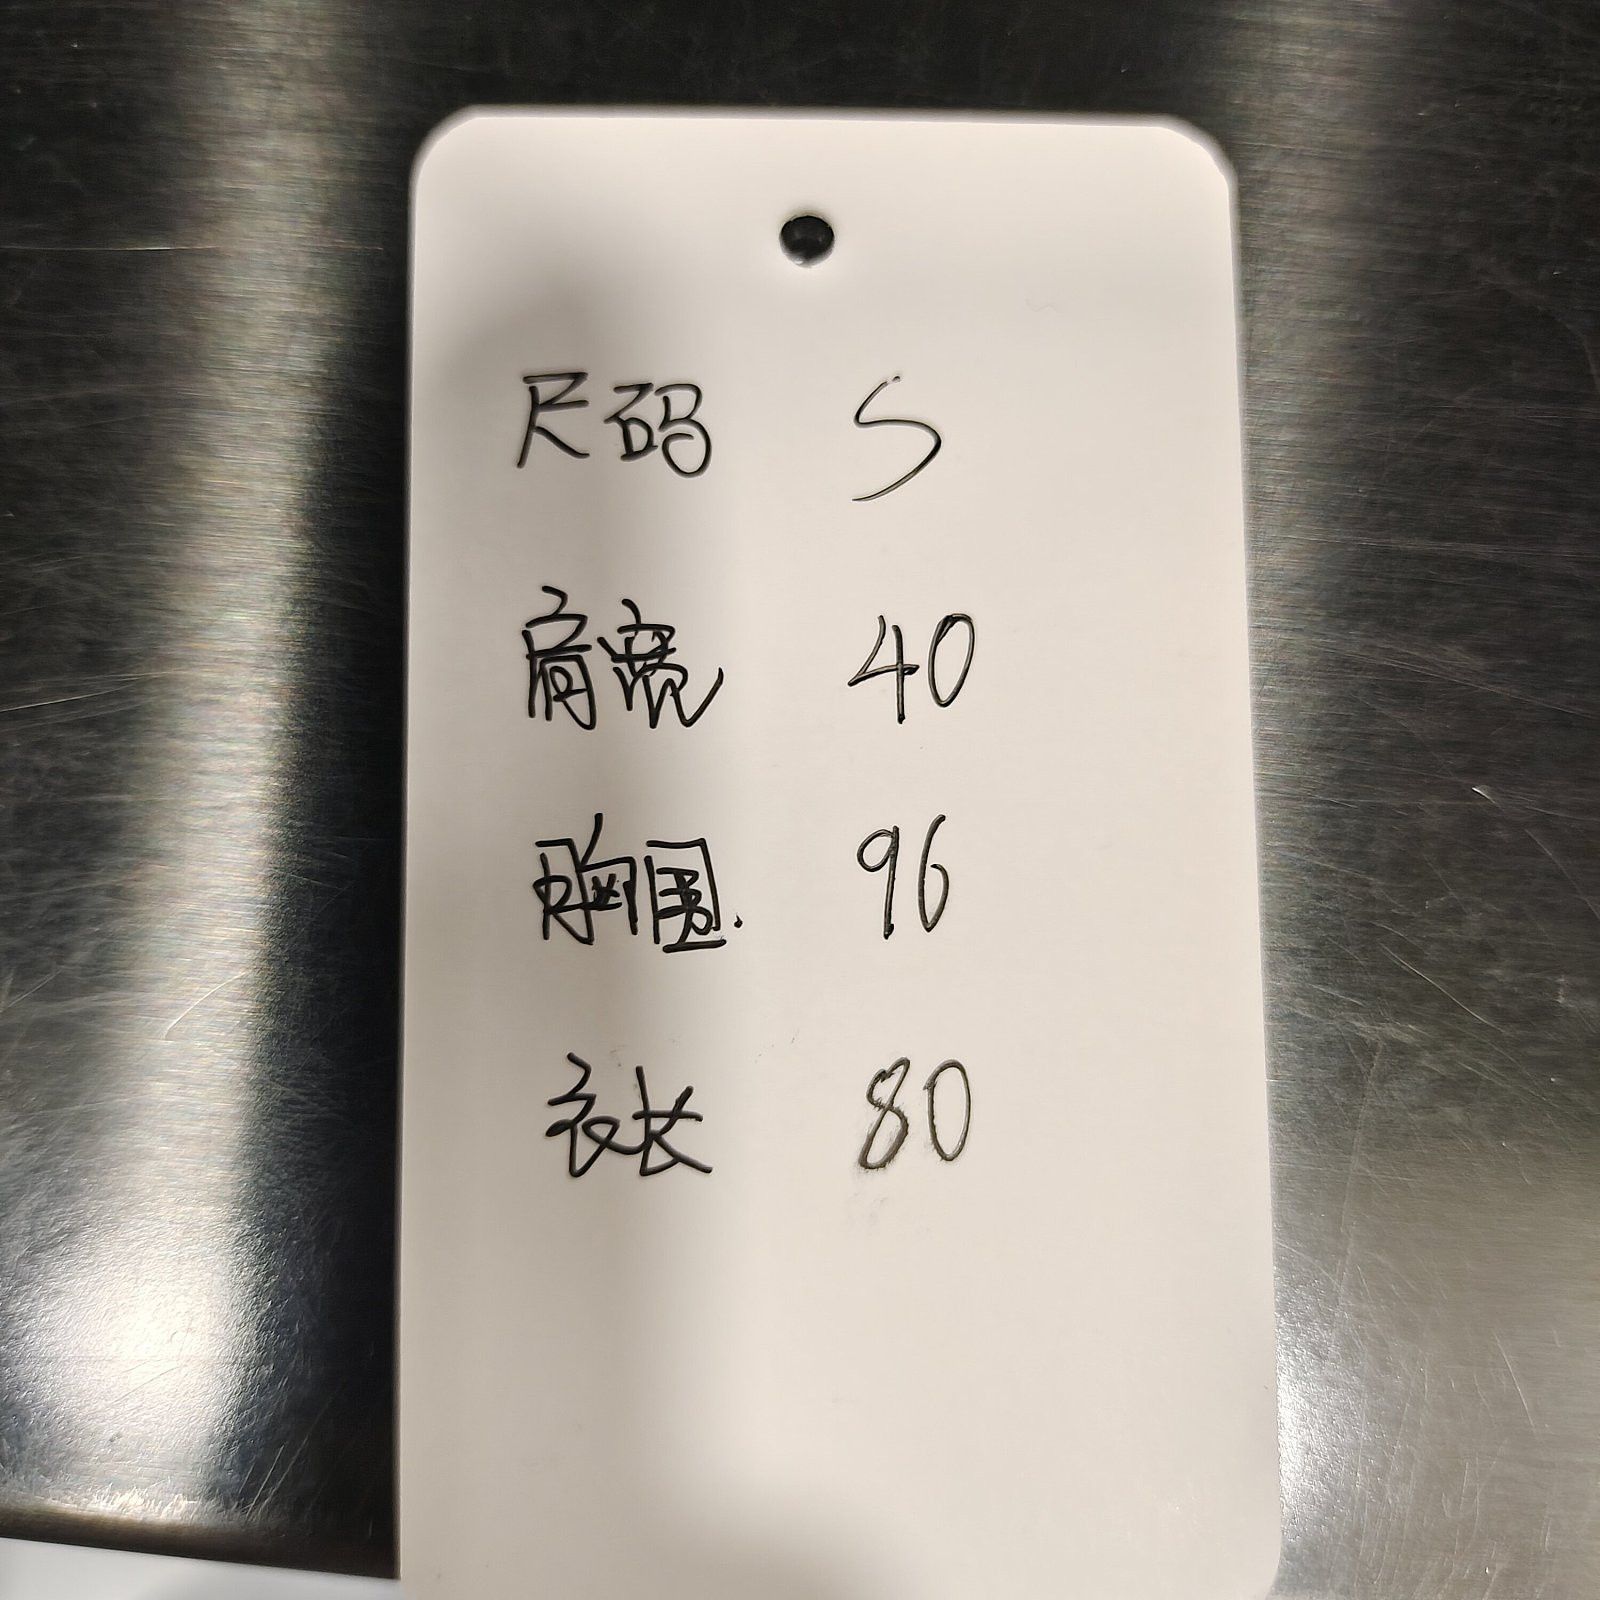 尺码 S
肩宽 40
胸围. 96
衣长 80